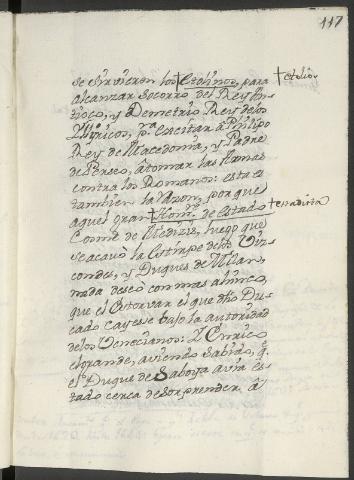 117
se sirvieron los †Etolinos, para †etolios
alcanzar socorro del Rey An-
tioco, y Demetrio Rey de los
Illiricos, pª excitar â Philipo
Rey de Macedonia, y Padre
de Perseo, â tomar las Armas
contra los Romanos: esta es
tambien la razon, porque
aquel gran †Hom.e de estado †estadista
Cosme de Medizis, luego que
se acavò la Estirpe de los Viz-
condes, y Duques de Milan,
nada deseò con mas ahinco,
que el estorvar el que dho Du-
cado cayesse bajo la autoridad
de los Venecianos: Y Enrico
el grande, aviendo sabido, q.
el Duque de Saboya avia es-
tado cerca de sorprender â